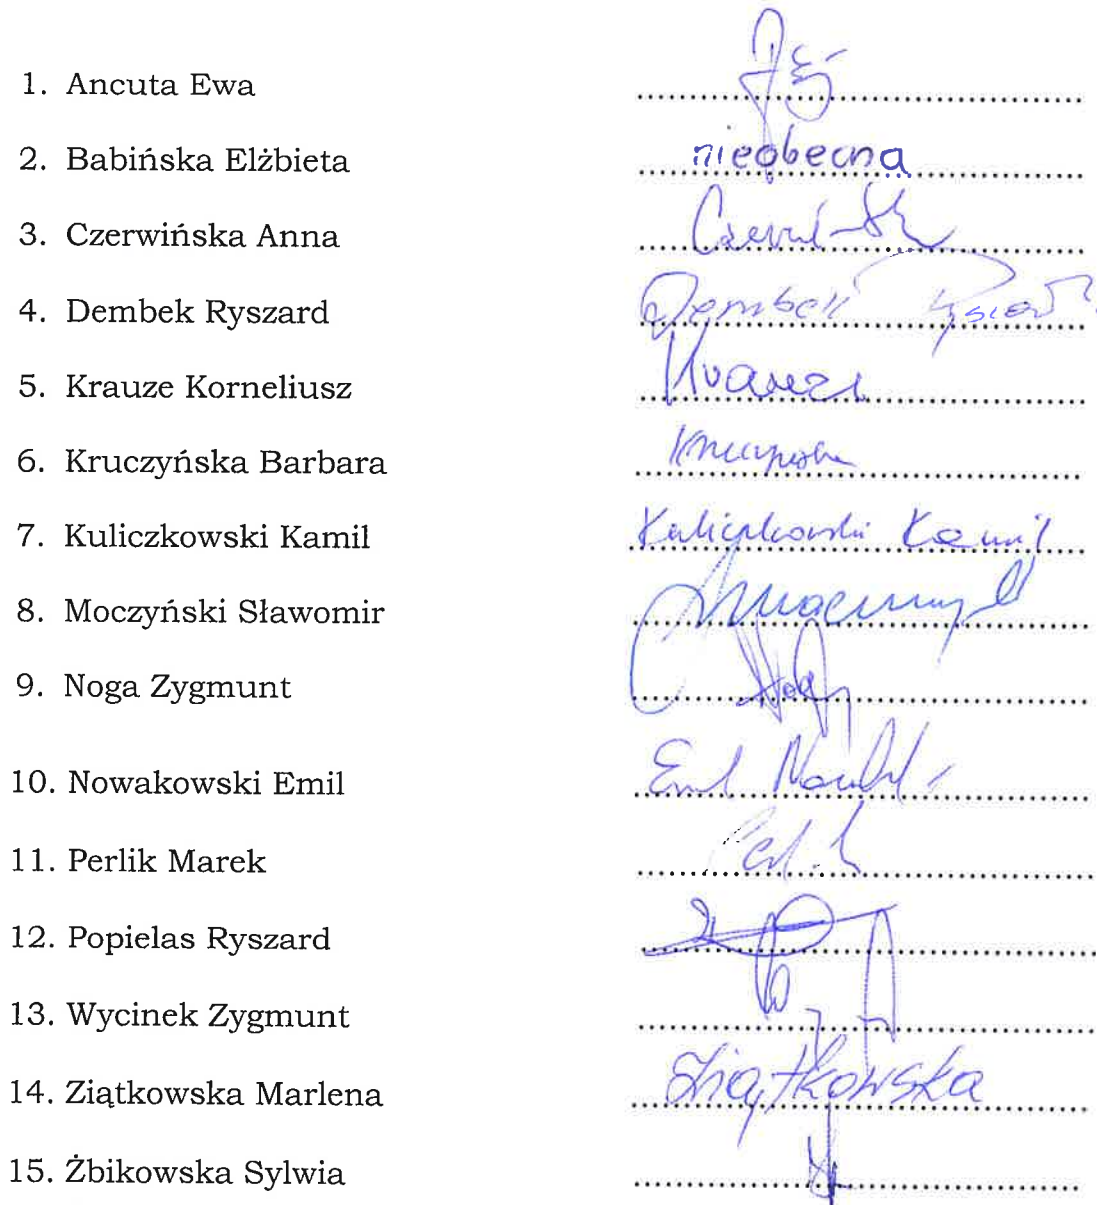 1. Ancuta Ewa
2. Babińska Elżbieta nieobecna
3. Czerwińska Anna
4. Dembek Ryszard Dembek
5. Krauze Korneliusz Krauze
6. Kruczyńska Barbara
7. Kuliczkowski Kamil Kuliczkowski Kamil
8. Moczyński Sławomir
9. Noga Zygmunt
10. Nowakowski Emil Emil
11. Perlik Marek
12. Popielas Ryszard
13. Wycinek Zygmunt
14. Ziątkowska Marlena Ziątkowska
15. Żbikowska Sylwia